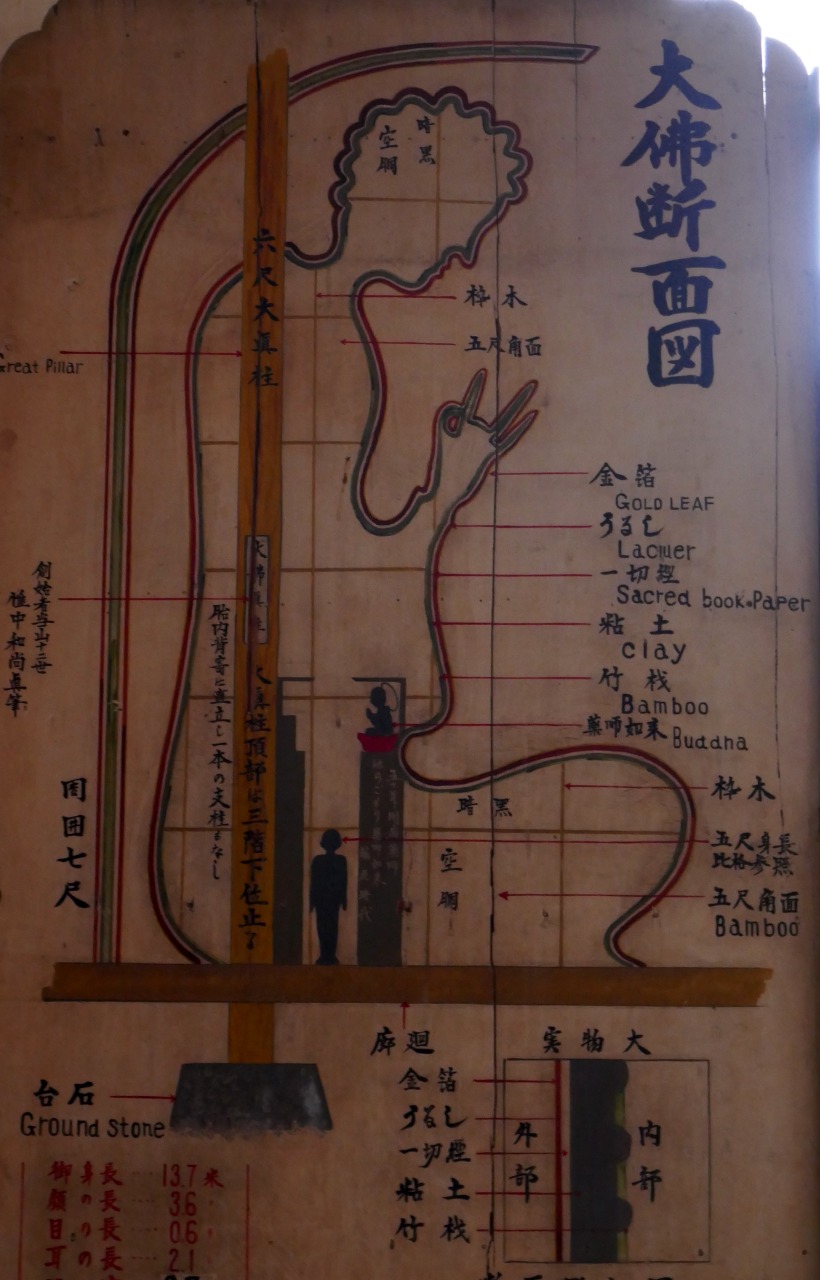 大佛断面図
暗黒
空胴
六尺大眞柱
枠木
五尺角面
Great Pillar
金箔
GOLD LEAF
うるし
Lacuer
一切經
Sacred book・Paper
粘土
clay
竹桟
Bamboo
薬師如来
Buddna
創始者当山十二世
惟中和尚眞筆
大佛眞柱
大眞柱頂部は三階下仕止了
胎内背寄に直立し一本の支柱もなし
周囲七尺
枠木
暗黒
空胴
五尺身長
比格参照
五尺角面
Bamboo
廊廻
台石
Ground stone
実物大
金箔
うるし
一切經
粘土
竹桟
外部
内部
御身長 13.7米
顔の長 3.6
目の長 0.6
耳の長 2.1